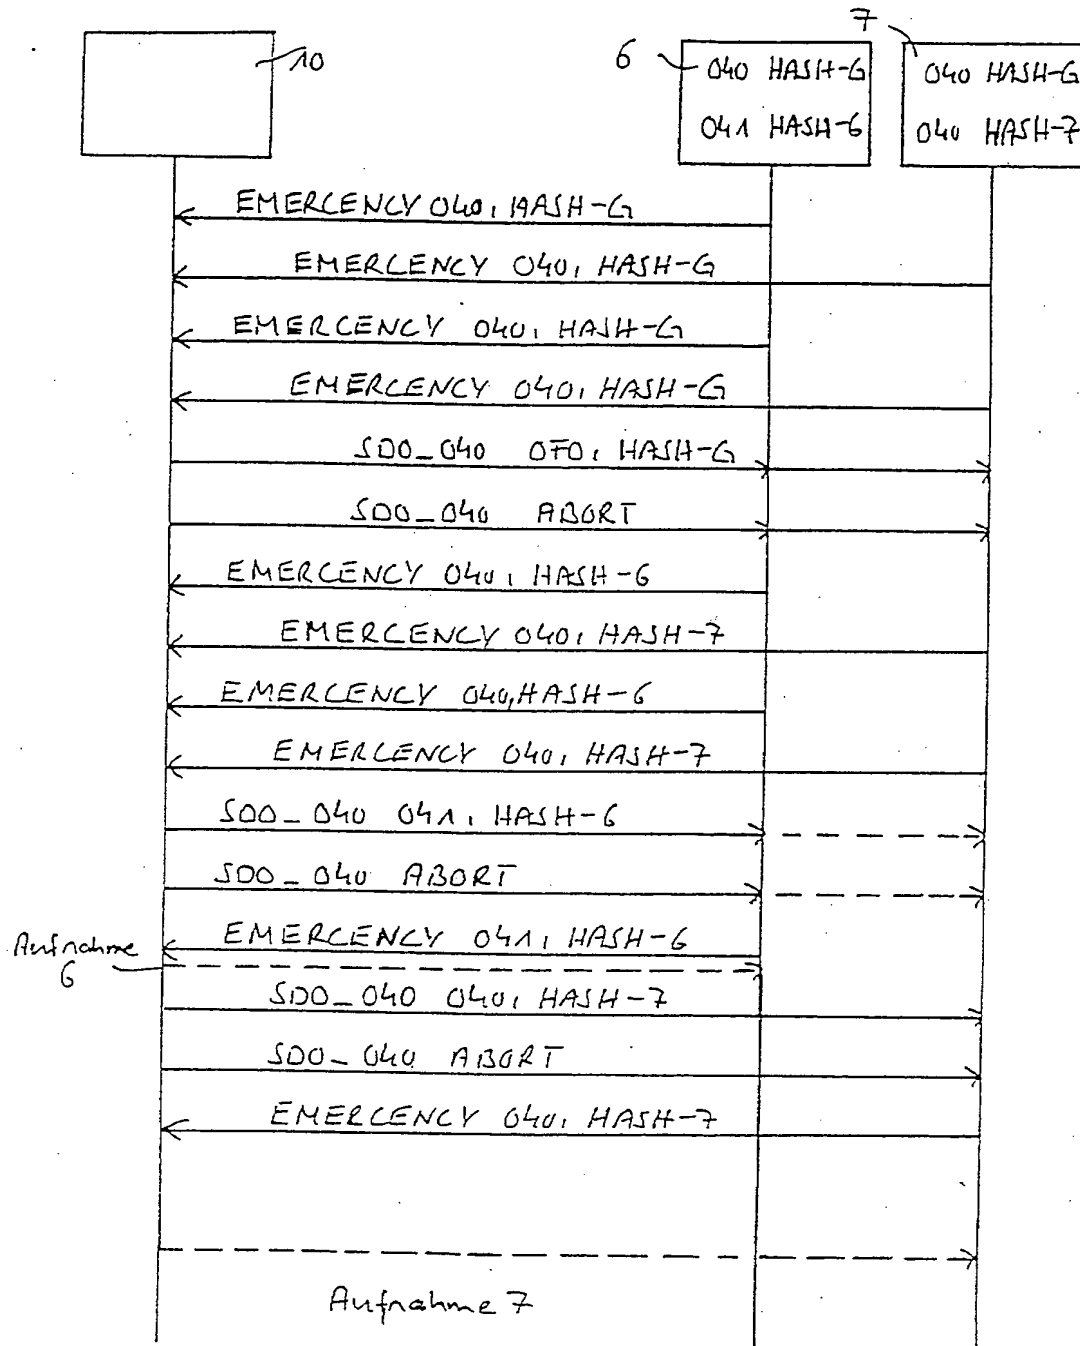 10
6
7
040 HASH-G
041 HASH-6
040 HASH-G
040 HASH-7
EMERCENCY 040, HASH-G
EMERCENCY 040, HASH-G
EMERCENCY 040, HASH-G
EMERCENCY 040, HASH-G
SDO_040 0F0, HASH-G
SDO_040 ABORT
EMERCENCY 040, HASH-6
EMERCENCY 040, HASH-7
EMERCENCY 040, HASH-6
EMERCENCY 040, HASH-7
SDO_040 041, HASH-6
SDO_040 ABORT
EMERCENCY 041, HASH-6
Aufnahme
6
SDO_040 040, HASH-7
SDO_040 ABORT
EMERCENCY 040, HASH-7
Aufnahme 7